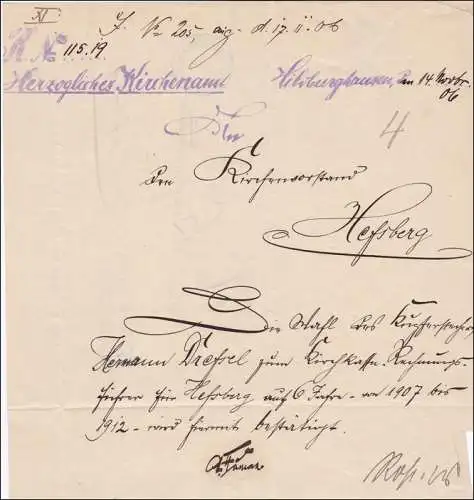 XI
J. No 205, eing. d. 17. 11. 06
K. No 115.19
Herzogliches Kirchenamt
Hildburghausen, den 14. Novbr.
06
An
4
den Kirchenvorstand
Heßberg
Die Wahl des Kupferstechers
Hermann Dressel zum Kirchkasse-Rechnungs-
führer für Heßberg auf 6 Jahre - von 1907 bis
1912 - wird hiermit bestätigt.